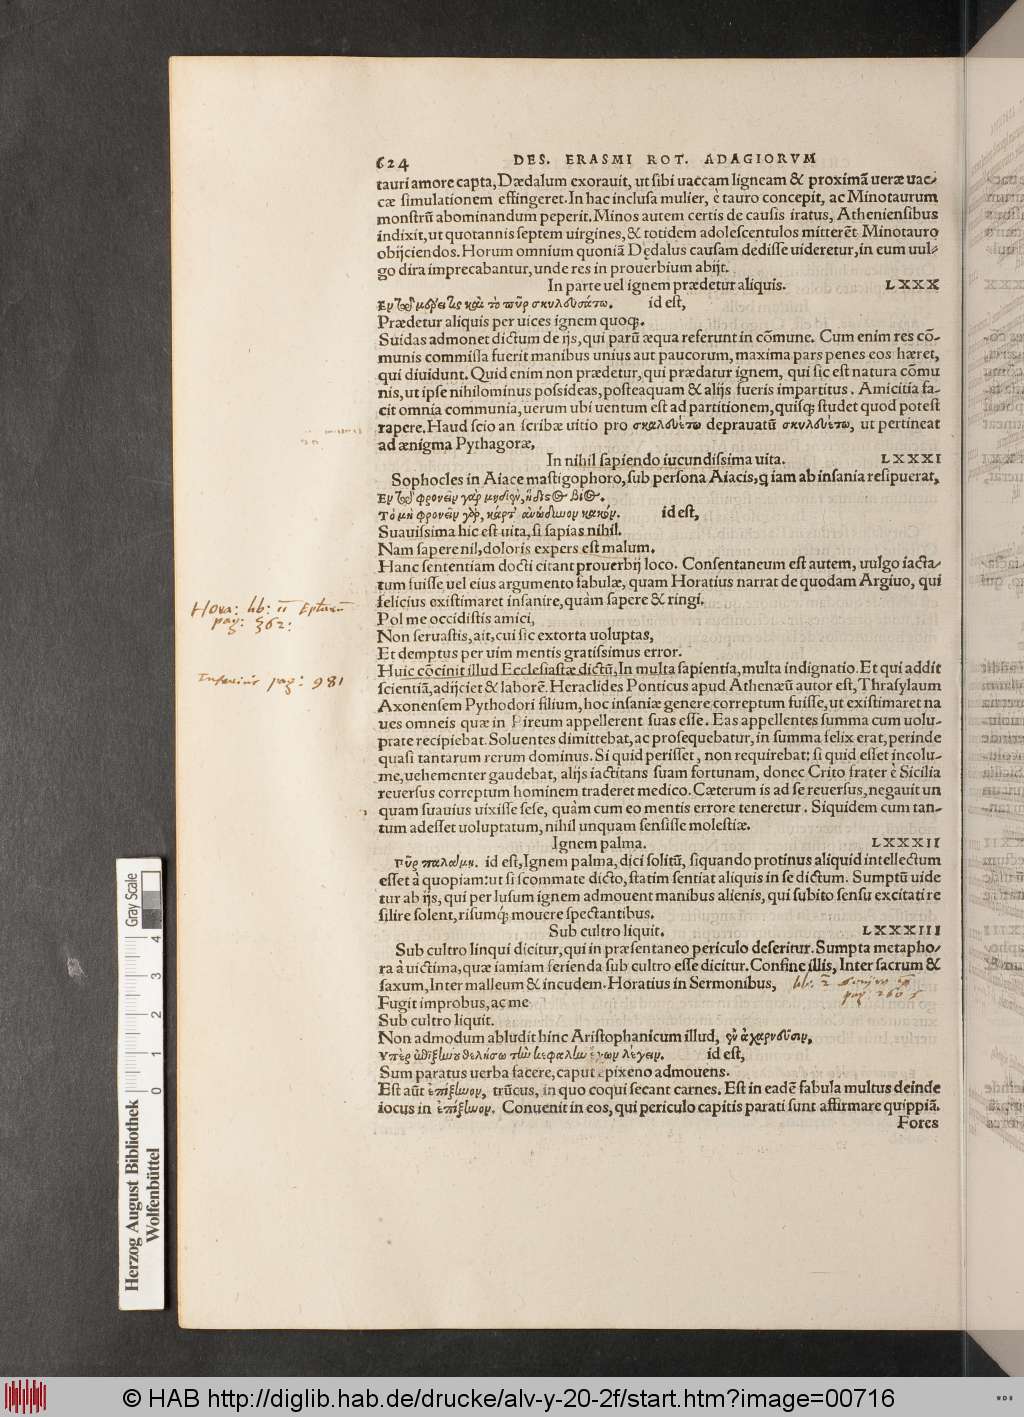 624 DES. ERASMI ROT. ADAGIORVM
tauri amore capta, Dædalum exorauit, ut sibi uaccam ligneam & proximã ueræ uac-
cæ simulationem effingeret. In hac inclusa mulier, è tauro concepit, ac Minotaurum
monstrũ abominandum peperit. Minos autem certis de causis iratus, Atheniensibus
indixit, ut quotannis septem uirgines, & totidem adolescentulos mitterẽt Minotauro
obijciendos. Horum omnium quoniã Dędalus causam dedisse uideretur, in eum uul-
go dira imprecabantur, unde res in prouerbium abijt.
In parte uel ignem prædetur aliquis. LXXX
Ἐν τῷ μέρει τις καὶ τὸ πῦρ σκυλευσάτω. id est,
Prædetur aliquis per uices ignem quoq;.
Suidas admonet dictum de ijs, qui parũ æqua referunt in cõmune. Cum enim res cõ-
munis commissa fuerit manibus unius aut paucorum, maxima pars penes eos hæret,
qui diuidunt. Quid enim non prædetur, qui prædatur ignem, qui sic est natura cõmu
nis, ut ipse nihilominus possideas, posteaquam & alijs fueris impartitus. Amicitia fa-
cit omnia communia, uerum ubi uentum est ad partitionem, quisq; studet quod potest
rapere. Haud scio an scribæ uitio pro σκαλευέτω deprauatũ σκυλευέτω, ut pertineat
ad ænigma Pythagoræ.
In nihil sapiendo iucundissima uita. LXXXI
Sophocles in Aiace mastigophoro, sub persona Aiacis, q iam ab insania resipuerat,
Ἐν τῷ φρονεῖν γὰρ μηδὲν, ἥδιστος βίος.
Τὸ μὴ φρονεῖν γὰρ, κάρτ' ἀνώδυνον κακόν. id est,
Suauissima hic est uita, si sapias nihil.
Nam sapere nil, doloris expers est malum.
Hanc sententiam docti citant prouerbij loco. Consentaneum est autem, uulgo iacta-
tum fuisse uel eius argumento fabulæ, quam Horatius narrat de quodam Argiuo, qui
felicius existimaret insanire, quàm sapere & ringi.
Hora: lib: II Epistularum
pag: 362:
Pol me occidistis amici,
Non seruastis, ait, cui sic extorta uoluptas,
Et demptus per uim mentis gratissimus error.
Huic cõcinit illud Ecclesiastæ dictũ, In multa sapientia, multa indignatio. Et qui addit
Inferius pag: 981
scientiã, adijciet & laborẽ. Heraclides Ponticus apud Athenæũ autor est, Thrasylaum
Axonensem Pythodori filium, hoc insaniæ genere correptum fuisse, ut existimaret na
ues omneis quæ in Pireum appellerent suas esse. Eas appellentes summa cum uolu-
ptate recipiebat. Soluentes dimittebat, ac prosequebatur, in summa felix erat, perinde
quasi tantarum rerum dominus. Si quid perisset, non requirebat: si quid esset incolu-
me, uehementer gaudebat, alijs iactitans suam fortunam, donec Crito frater è Sicilia
reuersus correptum hominem traderet medico. Cæterum is ad se reuersus, negauit un
quam suauius uixisse sese, quàm cum eo mentis errore teneretur. Siquidem cum tan-
tum adesset uoluptatum, nihil unquam sensisse molestiæ.
Ignem palma. LXXXII
Πῦρ παλάμη. id est, Ignem palma, dici solitũ, siquando protinus aliquid intellectum
esset à quopiam: ut si scommate dicto, statim sentiat aliquis in se dictum. Sumptũ uide
tur ab ijs, qui per lusum ignem admouent manibus alienis, qui subito sensu excitati re
silire solent, risumq; mouere spectantibus.
Sub cultro liquit. LXXXIII
Sub cultro linqui dicitur, qui in præsentaneo periculo deseritur. Sumpta metapho-
ra à uictima, quæ iamiam ferienda sub cultro esse dicitur. Confine illis, Inter sacrum &
saxum, Inter malleum & incudem. Horatius in Sermonibus,
Fugit improbus, ac me
Sub cultro liquit.
Non admodum abludit hinc Aristophanicum illud, ἐν ἀχαρνεῦσιν,
Ὑπὲρ ἐπιξήνου θελήσω τὴν κεφαλὴν ἔχων λέγειν. id est,
Sum paratus uerba facere, caput epixeno admouens.
Est aũt ἐπίξηνον, trũcus, in quo coqui secant carnes. Est in eadẽ fabula multus deinde
iocus in ἐπίξηνον. Conuenit in eos, qui periculo capitis parati sunt affirmare quippiã.
Fores
Gray Scale
4 3 2 1 0
Herzog August Bibliothek
Wolfenbüttel
© HAB http://diglib.hab.de/drucke/alv-y-20-2f/start.htm?image=00716